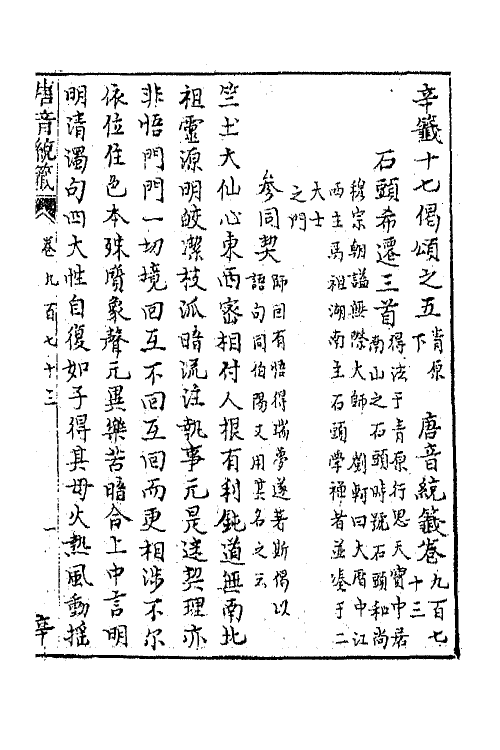 辛籤十七偈頌之五青原下　唐音統籤卷九百七十三
石頭希遷三首得法于青原行思天寶中居南山之石頭時號石頭和尚
穆宗朝謚無際大師　劉軻曰大曆中江西主馬祖湖南主石頭學禪者並湊于二
大士之門
參同契師因有悟得瑞夢遂著斯偈以語句同伯陽又用其名之云
竺土大仙心東西密相付人根有利鈍道無南北
祖靈源明皎潔枝派暗流注執事元是迷契理亦
非悟門門一切境回互不回互回而更相涉不尔
依位住色本殊質象聲元異樂苦暗合上中言明
明清濁句四大性自復如子得其母火熱風動揺
唐音統籤　卷九百七十三　一　辛